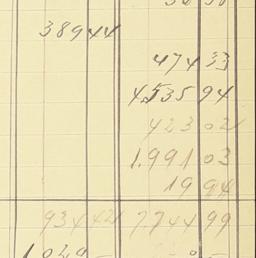 389 44
474 33
4535 94
423 02
1.991 03
19 94
934 42 7744 99
1 039 -